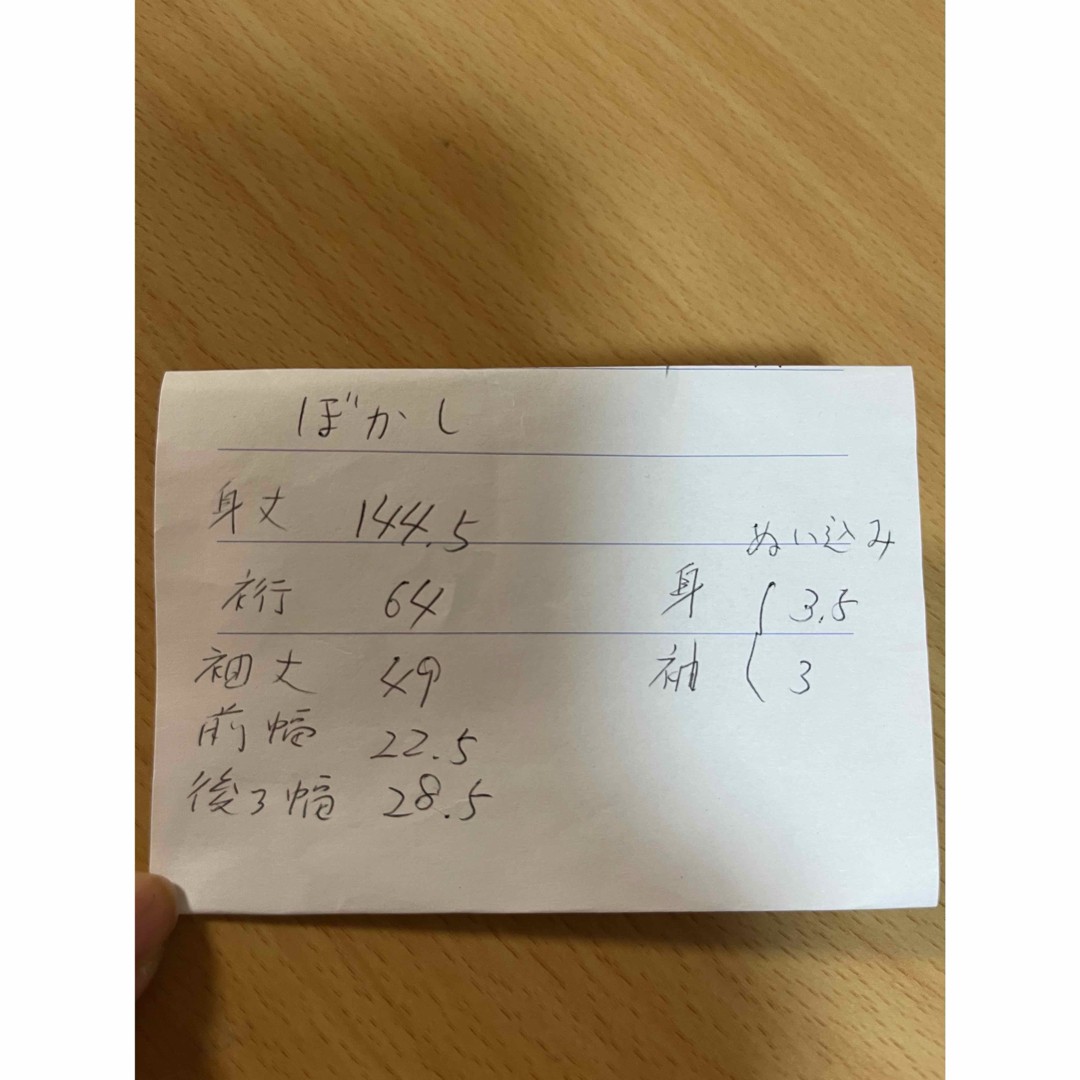 ぼかし
身丈 144.5
裄 64
袖丈 49
前幅 22.5
後ろ幅 28.5
ぬい込み
身 3.5
袖 3